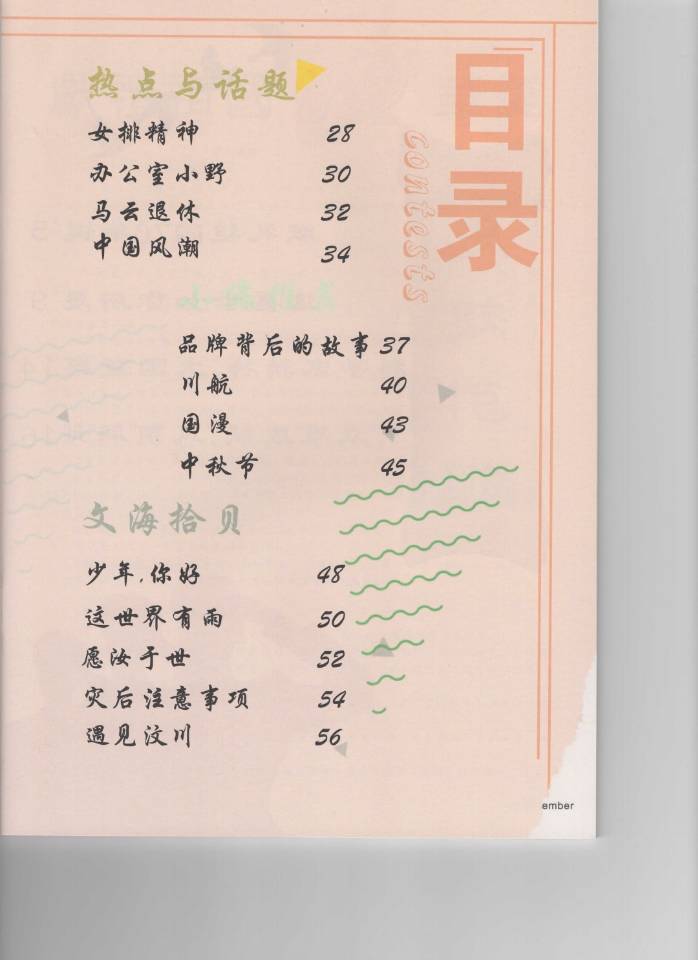 目录
contests
热点与话题
女排精神 28
办公室小野 30
马云退休 32
中国风潮 34
品牌背后的故事 37
川航 40
国漫 43
中秋节 45
文海拾贝
少年，你好 48
这世界有雨 50
愿汝于世 52
灾后注意事项 54
遇见汶川 56
ember